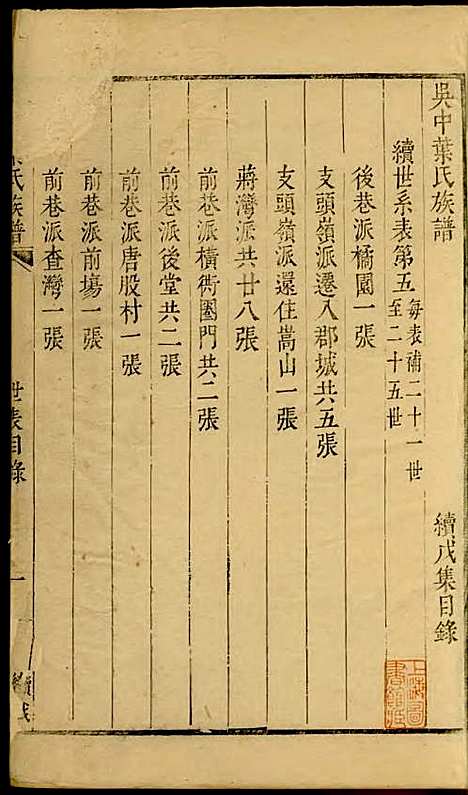 吳中葉氏族譜　續戊集目錄
續世系表第五每表補二十一世至二十五世
後巷派橘園一張
支頭嶺派遷入郡城共五張
支頭嶺派還住嵩山一張
蔣灣派共廿八張
前巷派橫衖圈門共二張
前巷派後堂共二張
前巷派唐股村一張
前巷派前塲一張
前巷派查灣一張
氏族譜　世表目錄　一
上海圖書館藏